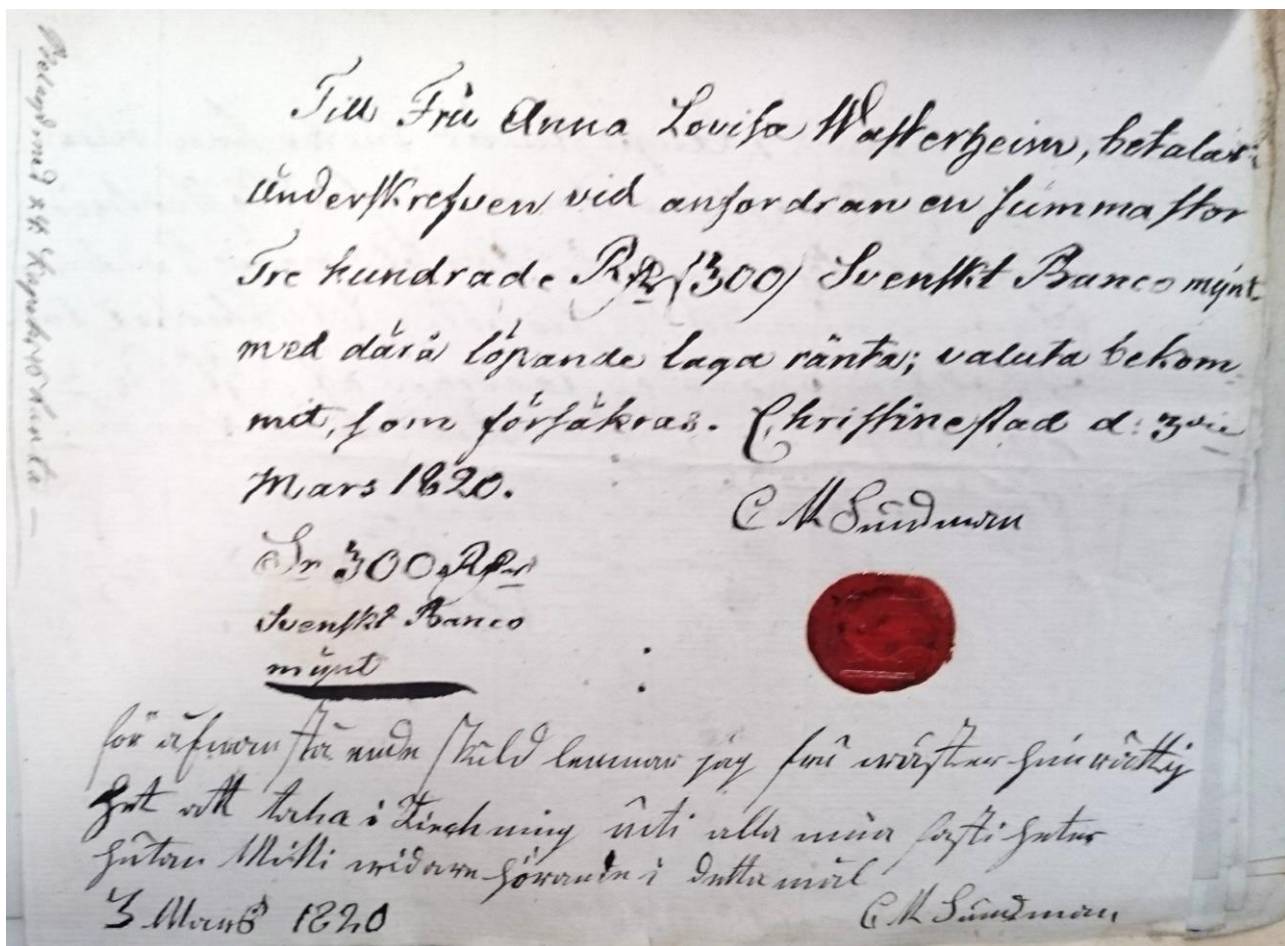 Till Fru Anna Lovisa Wasterheim, betalar
underskrefven vid anfordran en summa stor
Tre hundrade RDr (300) Svenskt Banco mynt
med därå löpande laga ränta; valuta bekom-
mit, som försäkras. Christinestad d: 3die
Mars 1820.
C M Sundman
Sr 300 RDr
Svenskt Banco
mynt
för åfvan stå ende skuld lemnar jag fru wäster heim rättig
het att taha i Teckning uti alla mina fasti heter
hutan Mitti widare hörande i detta mål
3 Mars 1820
C M Sundman